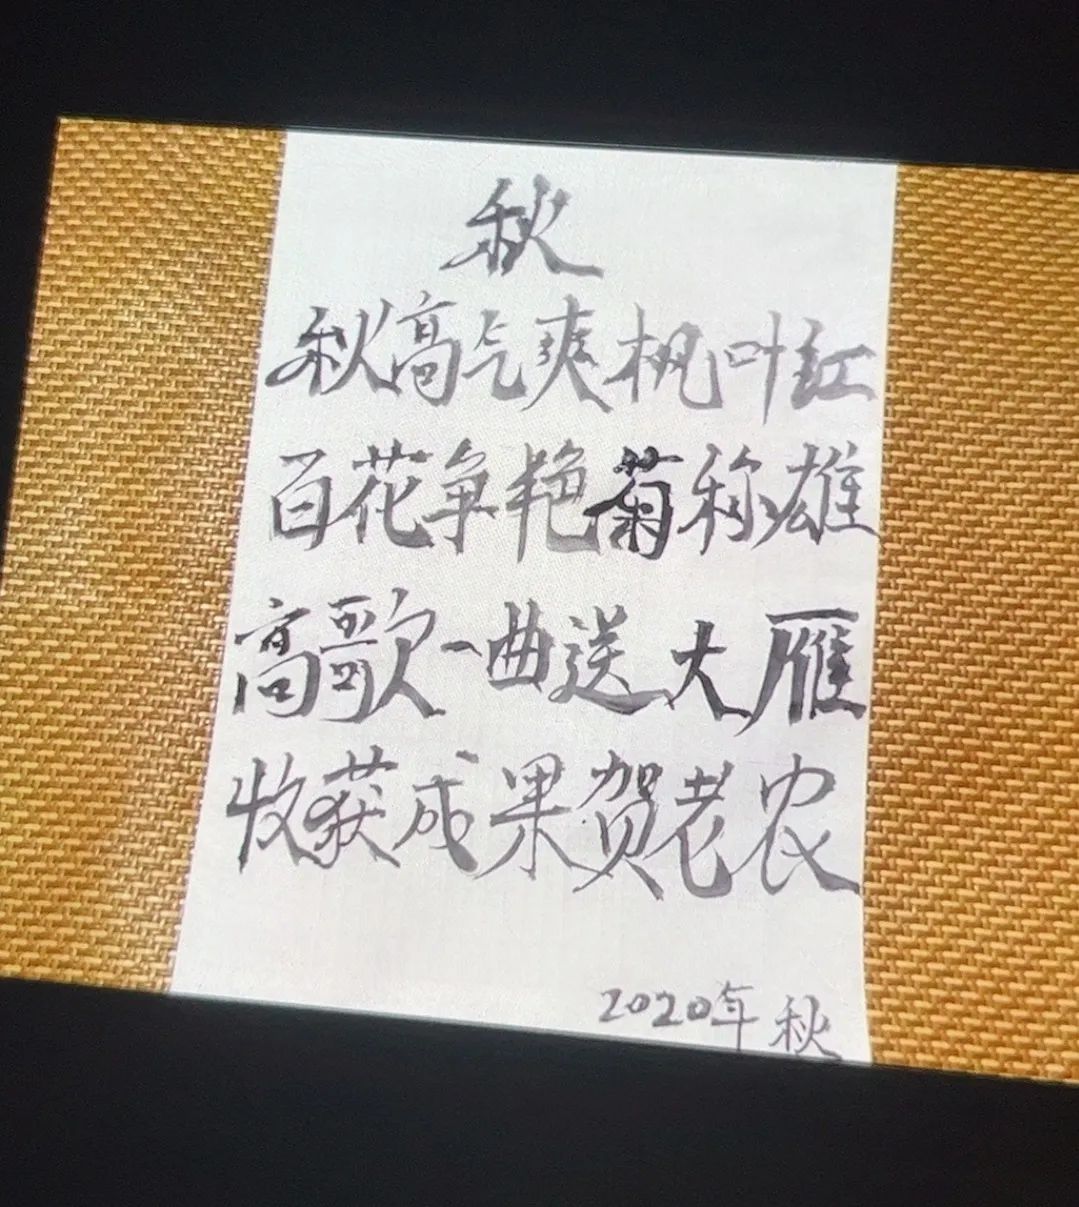 秋
秋高气爽枫叶红
百花争艳菊称雄
高歌一曲送大雁
收获成果贺老农
2020年秋